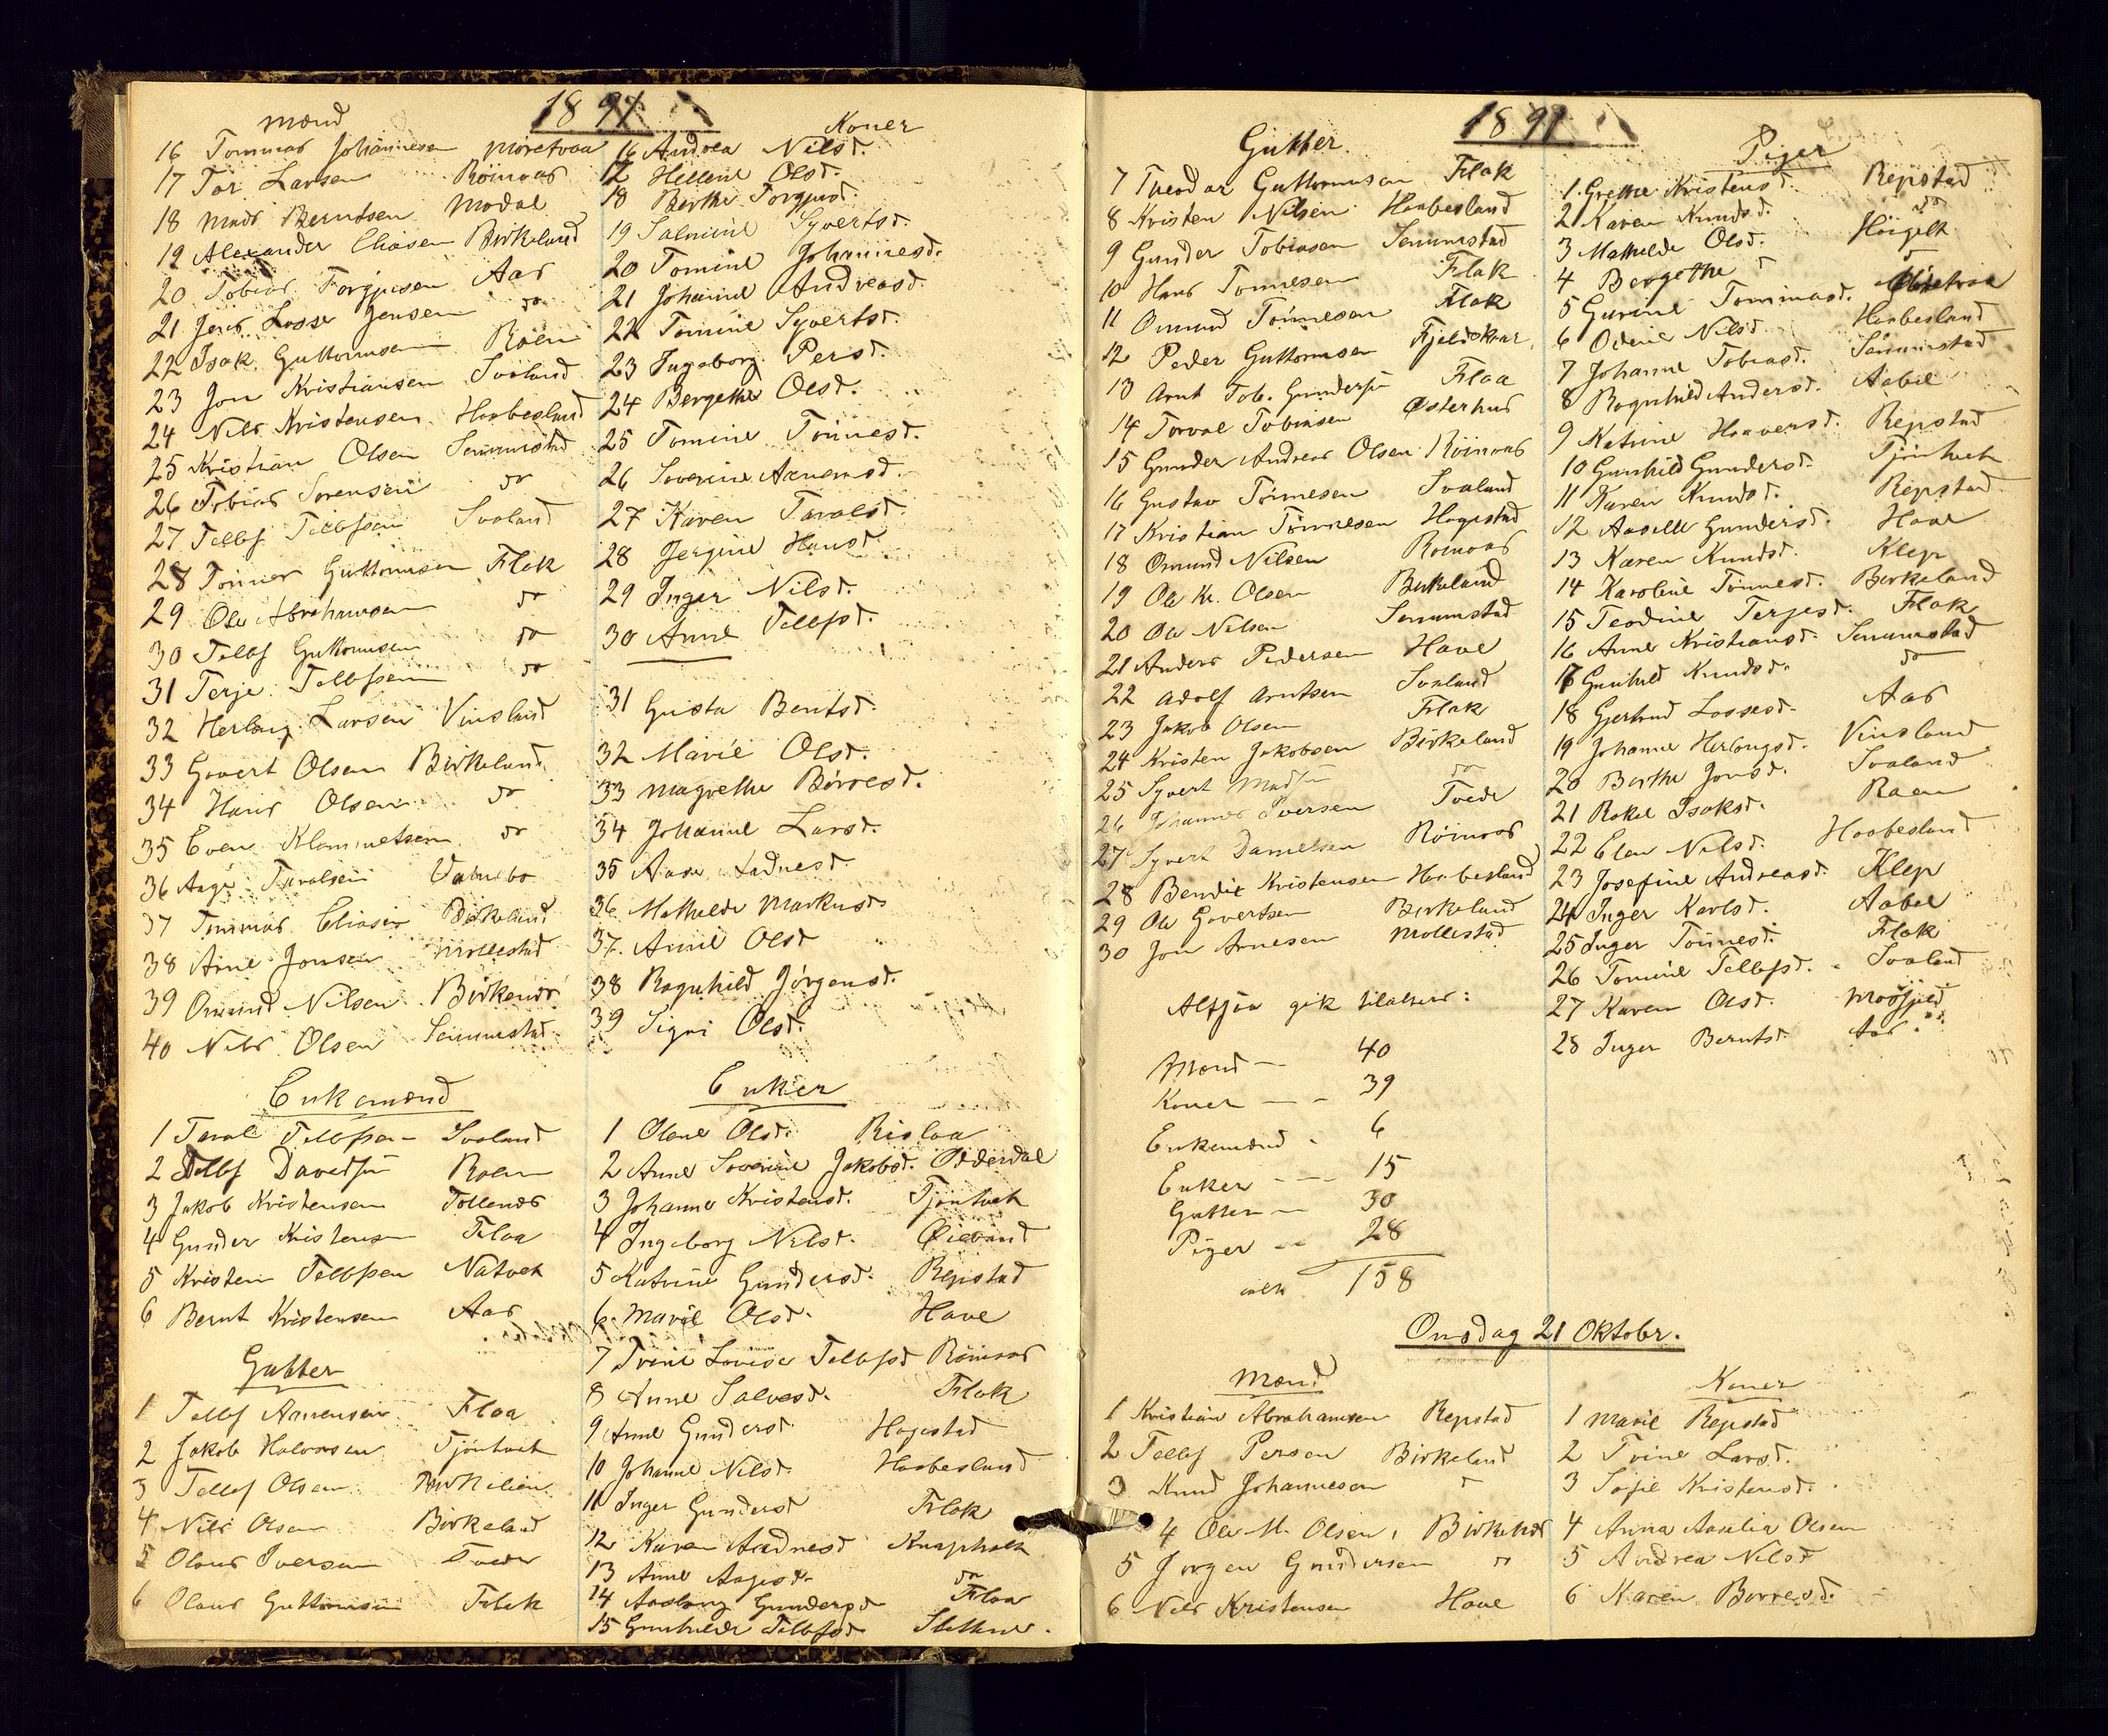 1891
Mænd
16 Tommas Johannesen
17 Tor Larsen Röinaas
18 Mads Berntsen Modal
19 Alexander Eliasen Birkeland
20 Tobias Torgjusen Aas
21 Jens Losse Jensen do
22 Isak Guttormsen Röen
23 Jon Kristiansen Svaland
24 Nils Kristensen Haabesland
25 Kristian Olsen Senumstad
26 Tobias Sørensen do
27 Tellef Tellefsen Svaland
28 Tönnes Guttormsen Flak
29 Ole Abrahamsen do
30 Tellef Guttormsen do
31 Terje Tellefsen do
32 Herlaug Larsen Vinsland
33 Govert Olsen Birkeland
34 Hans Olsen do
35 Even Klemmetsen do
36 Aage Taralsen
37 Tommas Eliasen Birkeland
38 Arne Jonsen Mollestad
39 Omund Nilsen
40 Nils Olsen Senumstad
Enkemænd
1 Taral Tellefsen Svaland
2 Tellef Davidsen Roen
3 Jakob Kristensen
4 Gunder Kristensen Flaa
5 Kristen Tellefsen Natvet
6 Bernt Kristensen Aas
Gutter
1 Tellef Aanensen Flaa
2 Jakob Halvorsen Tjöntvet
3 Tellef Olsen
4 Nils Olsen Birkeland
5 Olaus Iversen Tvede
6 Olaus Guttormsen Flak
Koner
16 Andrea Nilsd.
17 Hellene Olsd.
18 Berthe Torgjusd.
19 Salmine Syvertsd.
20 Tomine Johannesd.
21 Johanne Andreasd.
22 Tomine Syvertsd.
23 Ingeborg Persd.
24 Bergethe Olsd.
25 Tomine Tönnesd.
26 Soverine Aanensd.
27 Karen Taralsd.
28 Jergine Hansd.
29 Inger Nilsd.
30 Anne Tellefsd.
31 Gusta Bentsd.
32 Marie Olsd.
33 Magrethe Börresd.
34 Johanne Larsd.
35 Aase Aadnesd.
36 Mathilde Markusd.
37 Anne Olsd
38 Ragnhild Jörgensd.
39 Signi Olsd.
Enker
1 Olene Olsd. Rislaa
2 Anne Soverine Jakobsd. Odderdal
3 Johanne Kristensd. Tjöntvet
4 Ingeborg Nilsd. Øieland
5 Katrine Gundersd. Repstad
6 Marie Olsd. Have
7 Trine Lovise Tellefsd Röinaas
8 Anne Salvesd. Flak
9 Anne Gundersd Hagestad
10 Johanne Nilsd. Haabesland
11 Inger Gundersd Flak
12 Karen Aadnesd Knapholt
13 Anne Aagesd. do
14 Aaslaug Gundersd Flaa
15 Gunhilde Tellefsd
1891
Gutter.
7 Theodor Guttormsen Flak
8 Kristen Nilsen Haabesland
9 Gunder Tobiasen Senumstad
10 Hans Tonnesen Flak
11 Omund Tönnesen Flak
12 Peder Guttormsen
13 Arnt Tob. Gundersen Flaa
14 Torval Tobiasen Østerhus
15 Gunder Andreas Olsen Röinaas
16 Gustav Tönnesen Svaland
17 Kristian Tönnesen Hagestad
18 Omund Nilsen Röinaas
19 Ole Kr. Olsen Birkeland
20 Ole Nilsen Senumstad
21 Anders Pedersen Have
22 Adolf Arntsen Svaland
23 Jakob Olsen Flak
24 Kristen Jakobsen Birkeland
25 Syvert Madsen do
26 Johannes Iversen Tvede
27 Syvert Danielsen Röinaas
28 Bendix Kristensen Haabesland
29 Ole Govertsen Birkeland
30 Jon Arnesen Mollestad
Altsaa gik tilalters:
Mænd — 40
Koner — - 39
Enkemænd - 6
Enker - - - 15
Gutter — 30
Piger - - 28
ialt 158
Piger
1 Grethe Kristensd. Repstad
2 Karen Knudsd. do
3 Mathilde Olsd. Höigelt
4 Bergethe
5 Gurine Tommasd.
6 Odine Nilsd Haabesland
7 Johanne Tobiasd. Senumstad
8 Ragnhild Andersd. Aabel
9 Katrine Haaversd. Repstad
10 Gunhild Gundersd. Tjöntvet
11 Karen Knudsd. Repstad
12 Aasille Gundersd. Have
13 Karen Knudsd. Klep
14 Karoline Tönnesd. Birkeland
15 Teodine Terjesd. Flak
16 Anne Kristiansd. Senumstad
17 Gunhild Knudsd. do
18 Gjertrud Lossesd. Aas
19 Johanne Herlaugsd. Vinsland
20 Berthe Jonsd. Svaland
21 Rakel Isaksd. Roen
22 Elen Nilsd. Haabesland
23 Josefine Andreasd. Klep
24 Inger Karlsd. Aabel
25 Inger Tönnesd. Flak
26 Tomine Tellefsd. Svaland
27 Karen Olsd. Mosfjeld
28 Inger Berntsd. Aas
Onsdag 21 Oktobr.
Mænd
1 Kristian Abrahamsen Repstad
2 Tellef Persen Birkeland
3 Knud Johannesen
4 Ole M. Olsen,
5 Jorgen Gundersen
6 Nils Kristensen Have
Koner
1 Marie Repstad
2 Trine Larsd.
3 Sofie Kristensd.
4 Anna Amalia Olsen
5 Andrea Nilsd
6 Karen Borresd.